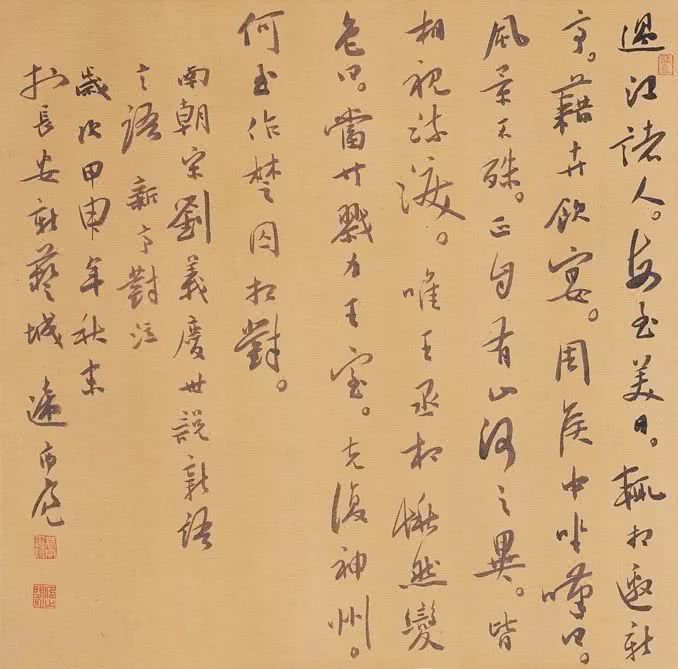 過江諸人。每至美日。輒相邀新
亭。藉卉飲宴。周侯中坐嘆曰。
風景不殊。正自有山河之異。皆
相視流淚。唯王丞相愀然變
色曰。當共戮力王室。克復神州。
何至作楚囚相對。
南朝宋劉義慶世說新語
言語 新亭對泣
歲次甲申年秋
於長安新藝城